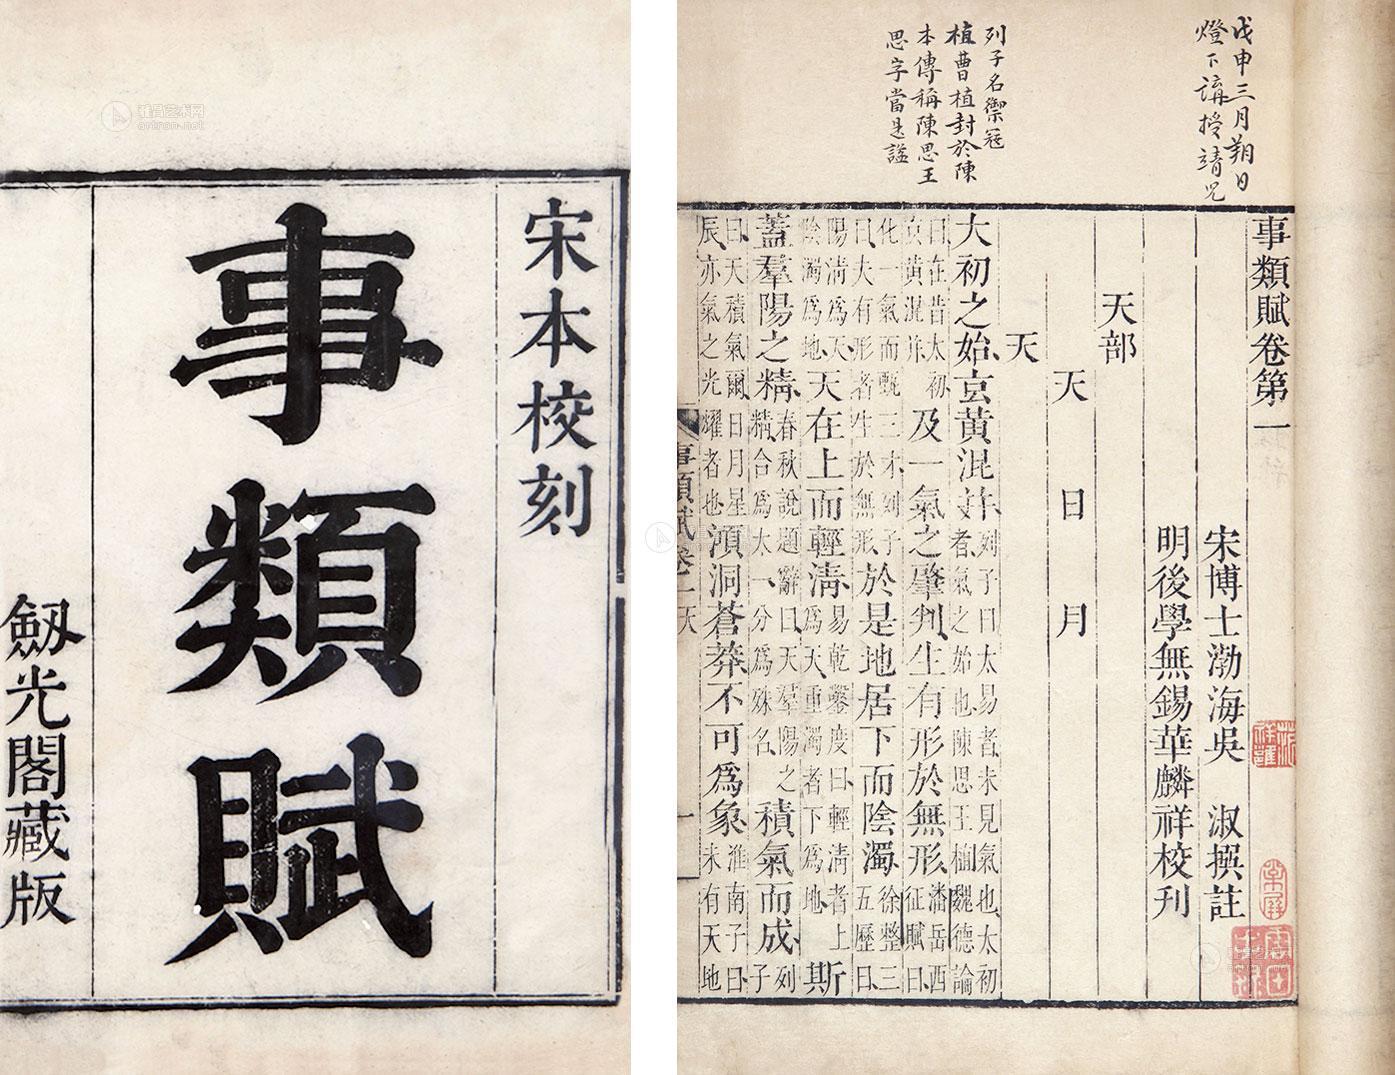 宋本校刻
事類賦
劔光閣藏版
雅昌艺术网
artron.net
戊申三月朔日
燈下講授靖兒
列子名禦寇
植曹植封於陳
本傳稱陳思王
思字當是謚
事類賦卷第一
宋博士渤海吳 淑撰註
明後學無錫華麟祥校刊
天部
天 日 月
天
大初之始玄黃混并列子曰太易者未見氣也太初者氣之始也陳思王植魏德論
曰在昔太初玄黃混并及一氣之肇判生有形於無形潘岳西征賦曰
化一氣而甄三才列子曰大有形者生於無形於是地居下而陰濁徐整三五歷曰
陽清爲天陰濁爲地天在上而輕清易乾鑿度曰輕清者上爲天重濁者下爲地斯
蓋羣陽之精春秋說題辭曰天羣陽之精合爲太一分爲殊名積氣而成列子
曰天積氣爾日月星辰亦氣之光耀者也澒洞蒼莽不可爲象淮南子曰未有天地
事類賦卷一 天 一